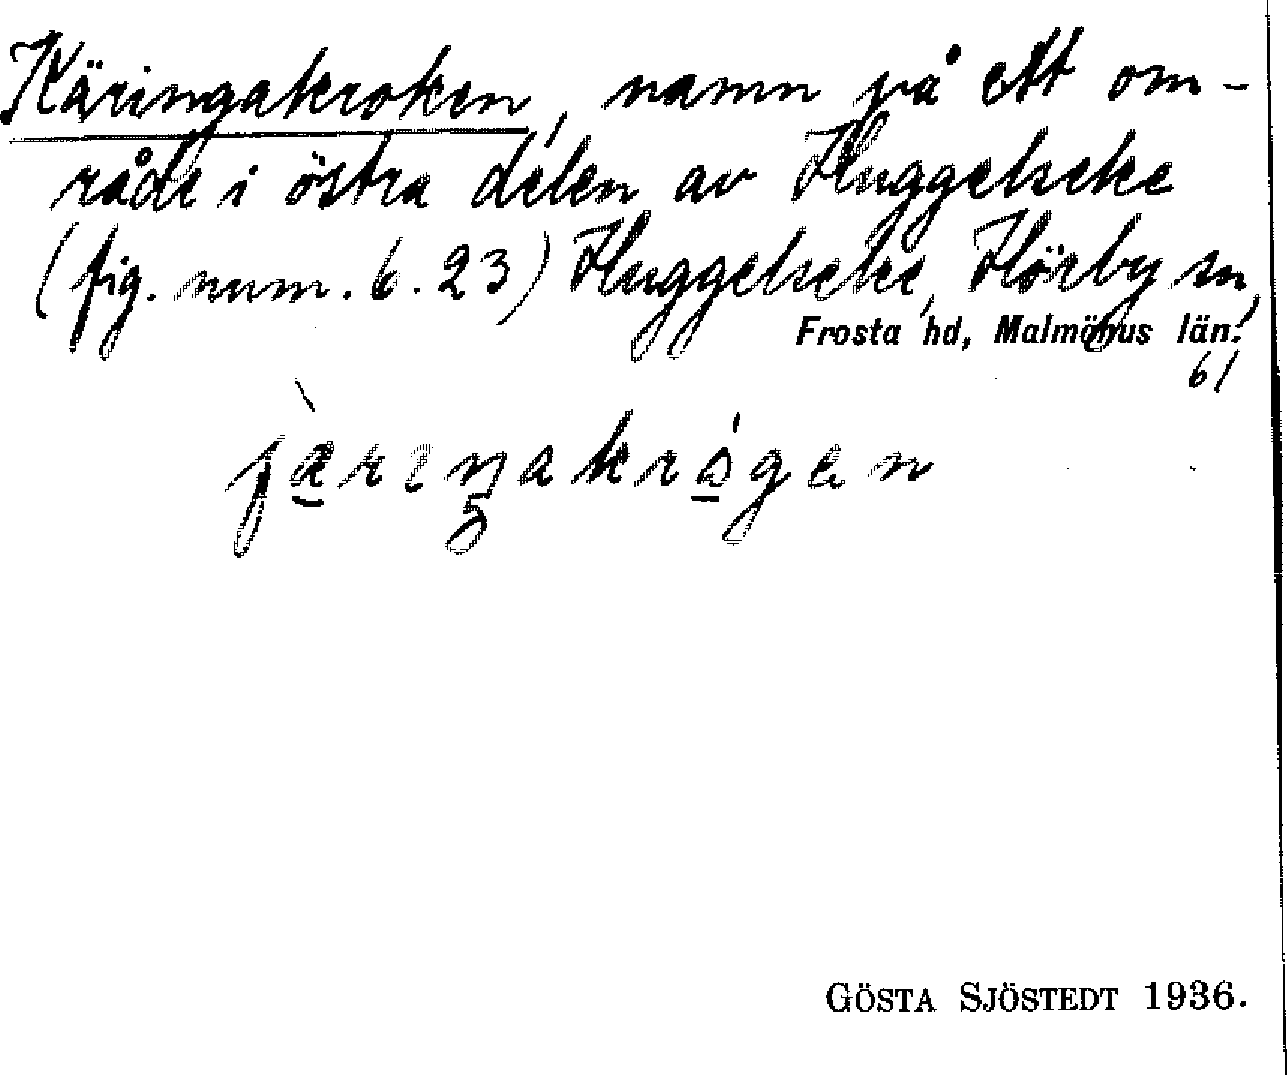 Käringakroken, namn på ett om-
råde i östra delen av Huggelseke
(fig. num. 6. 23) Huggelseke, Hörby sn,
Frosta hd, Malmöhus län.
61
GÖSTA SJÖSTEDT 1936.